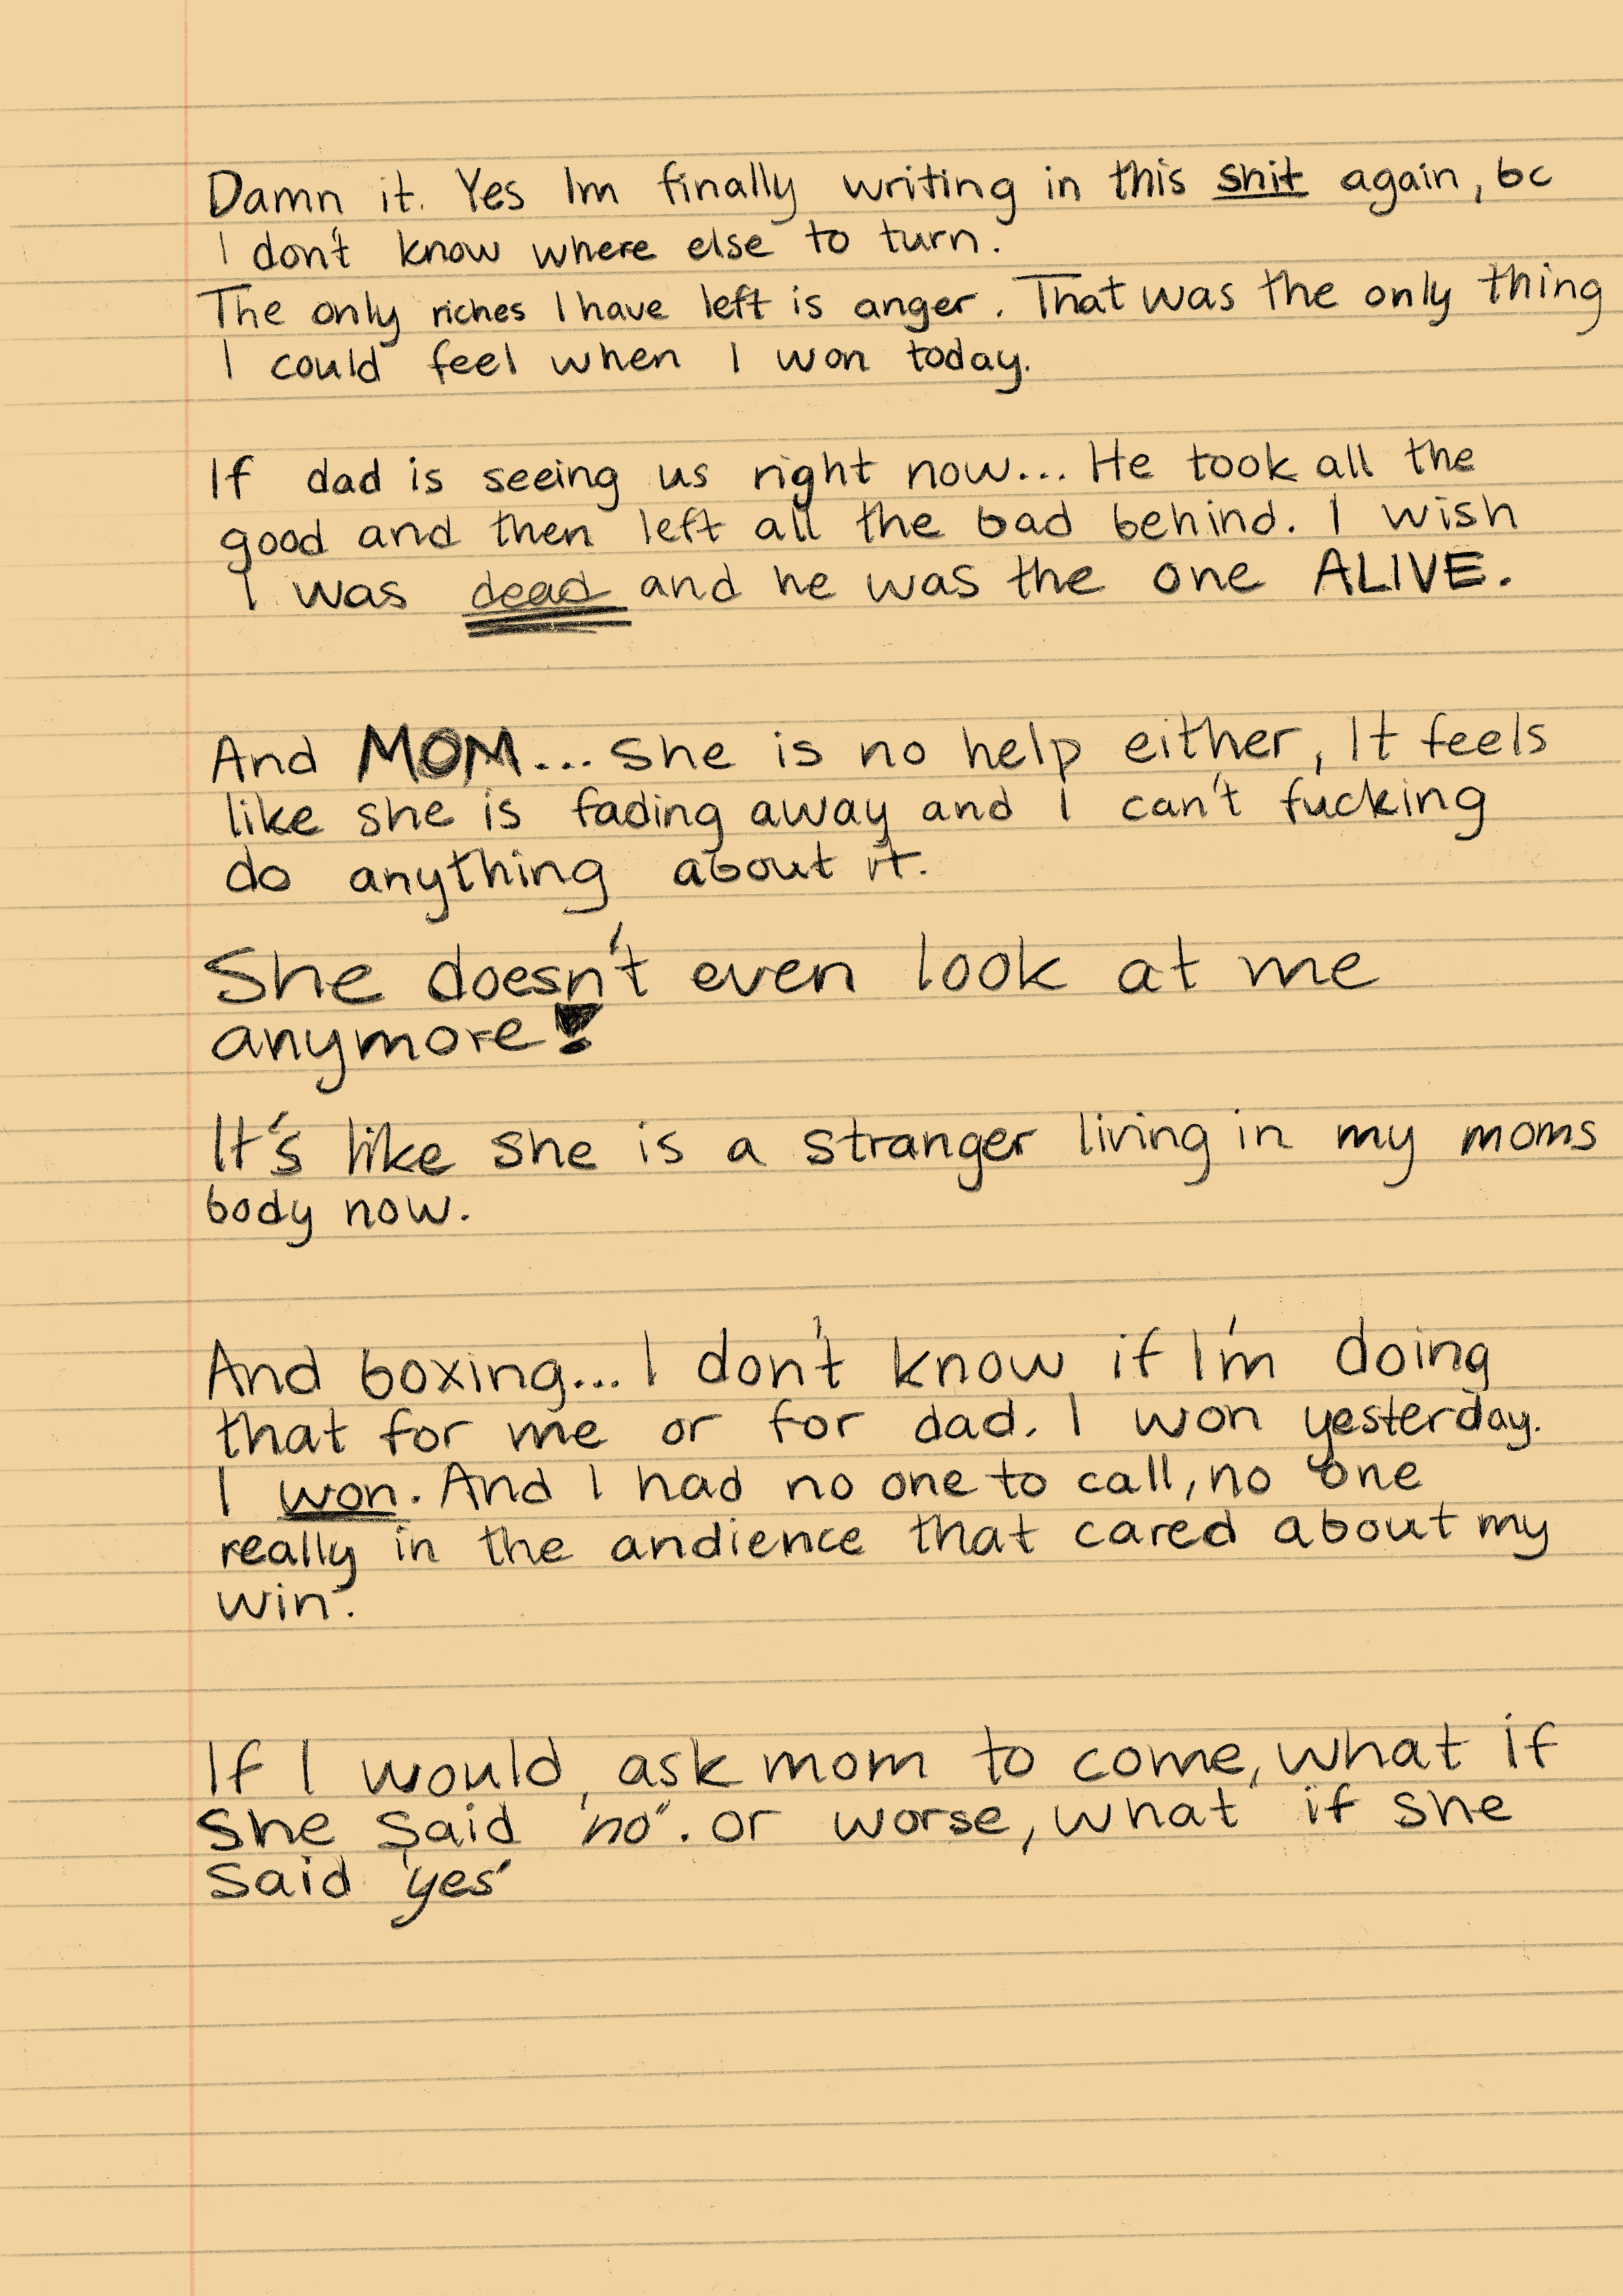 Damn it. Yes Im finally writing in this shit again, bc
I don't know where else to turn.
The only riches I have left is anger. That was the only thing
I could feel when I won today.
If dad is seeing us right now... He took all the
good and then left all the bad behind. I wish
I was dead and he was the one ALIVE.
And MOM... She is no help either, It feels
like she is fading away and I can't fucking
do anything about it.
She doesn't even look at me
anymore!
It's like she is a stranger living in my moms
body now.
And boxing... I don't know if I'm doing
that for me or for dad. I won yesterday.
I won. And I had no one to call, no one
really in the audience that cared about my
win.
If I would ask mom to come, what if
she said 'no". or worse, what if she
said 'yes'